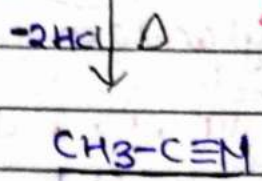 -2HCl Δ
CH3-C≡N